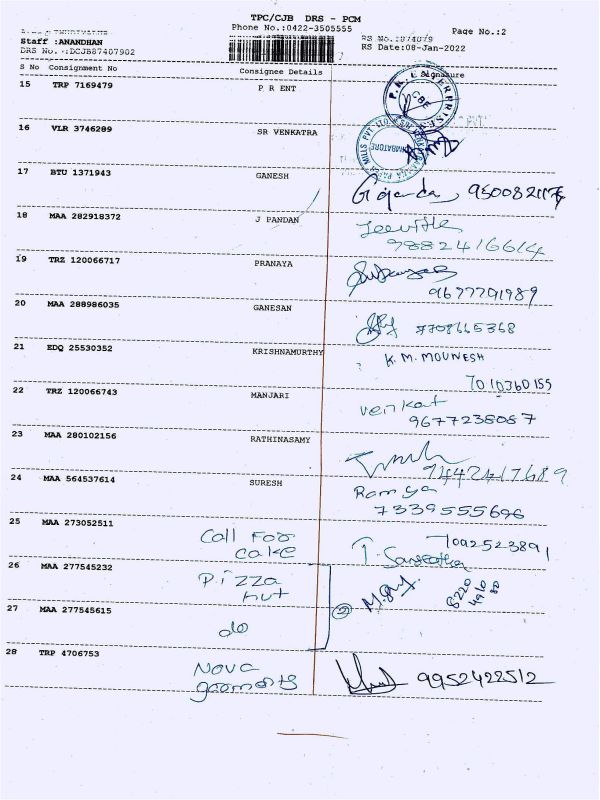 TPC/CJB DRS - PCM
Phone No.:0422-3505555
Page No.:2
Staff :ANANDHAN
DRS No.:DCJB87407902
RS Date:08-Jan-2022
S No Consignment No Consignee Details Signature
15 TRP 7169479 P R ENT
16 VLR 3746289 SR VENKATRA
COIMBATORE
17 BTU 1371943 GANESH
9500821174
18 MAA 282918372 J PANDAN
9882416614
19 TRZ 120066717 PRANAYA
9677791989
20 MAA 288986035 GANESAN
7708665368
21 EDQ 25530352 KRISHNAMURTHY K. M. MOUNESH
7010360155
22 TRZ 120066743 MANJARI venkat
9677238087
23 MAA 280102156 RATHINASAMY
9442417689
24 MAA 564537614 SURESH Ramya
7339555696
25 MAA 273052511 Call For
cake
7092523891
26 MAA 277545232 Pizza
hut
27 MAA 277545615
do
2
28 TRP 4706753 Nova
garments
9952422512